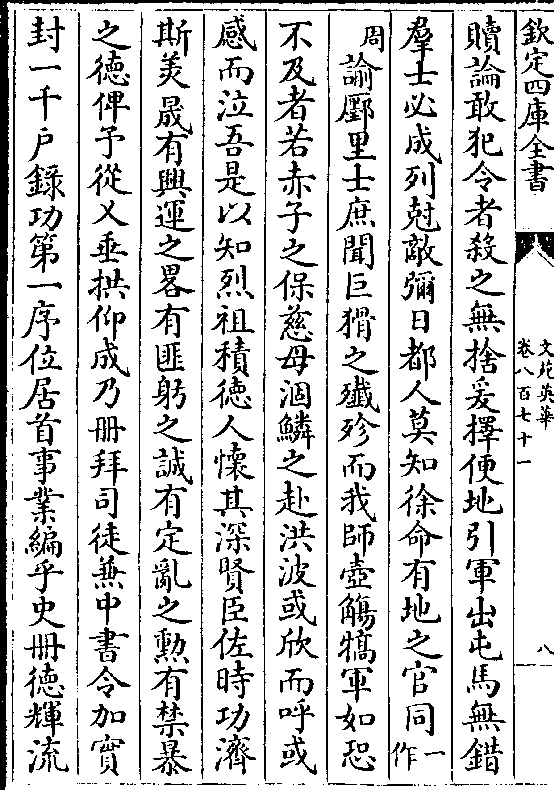 欽定四庫全書
文苑英華
卷八百七十一
八
贖論敢犯令者殺之無捨爰擇便地引軍出屯馬無錯
羣士必成列尅敵彌日都人莫知徐命有地之官同一作
周諭鄽里士庶聞巨猾之殱殄而我師壺觴犒軍如恐
不及者若赤子之保慈母涸鱗之赴洪波或欣而呼或
感而泣吾是以知烈祖積徳人懷其深賢臣佐時功濟
斯羙晟有興運之畧有匪躬之誠有定亂之勲有禁暴
之徳俾予從乂垂拱仰成乃册拜司徒兼中書令加實
封一千户録功第一序位居首事業編乎史册徳輝流